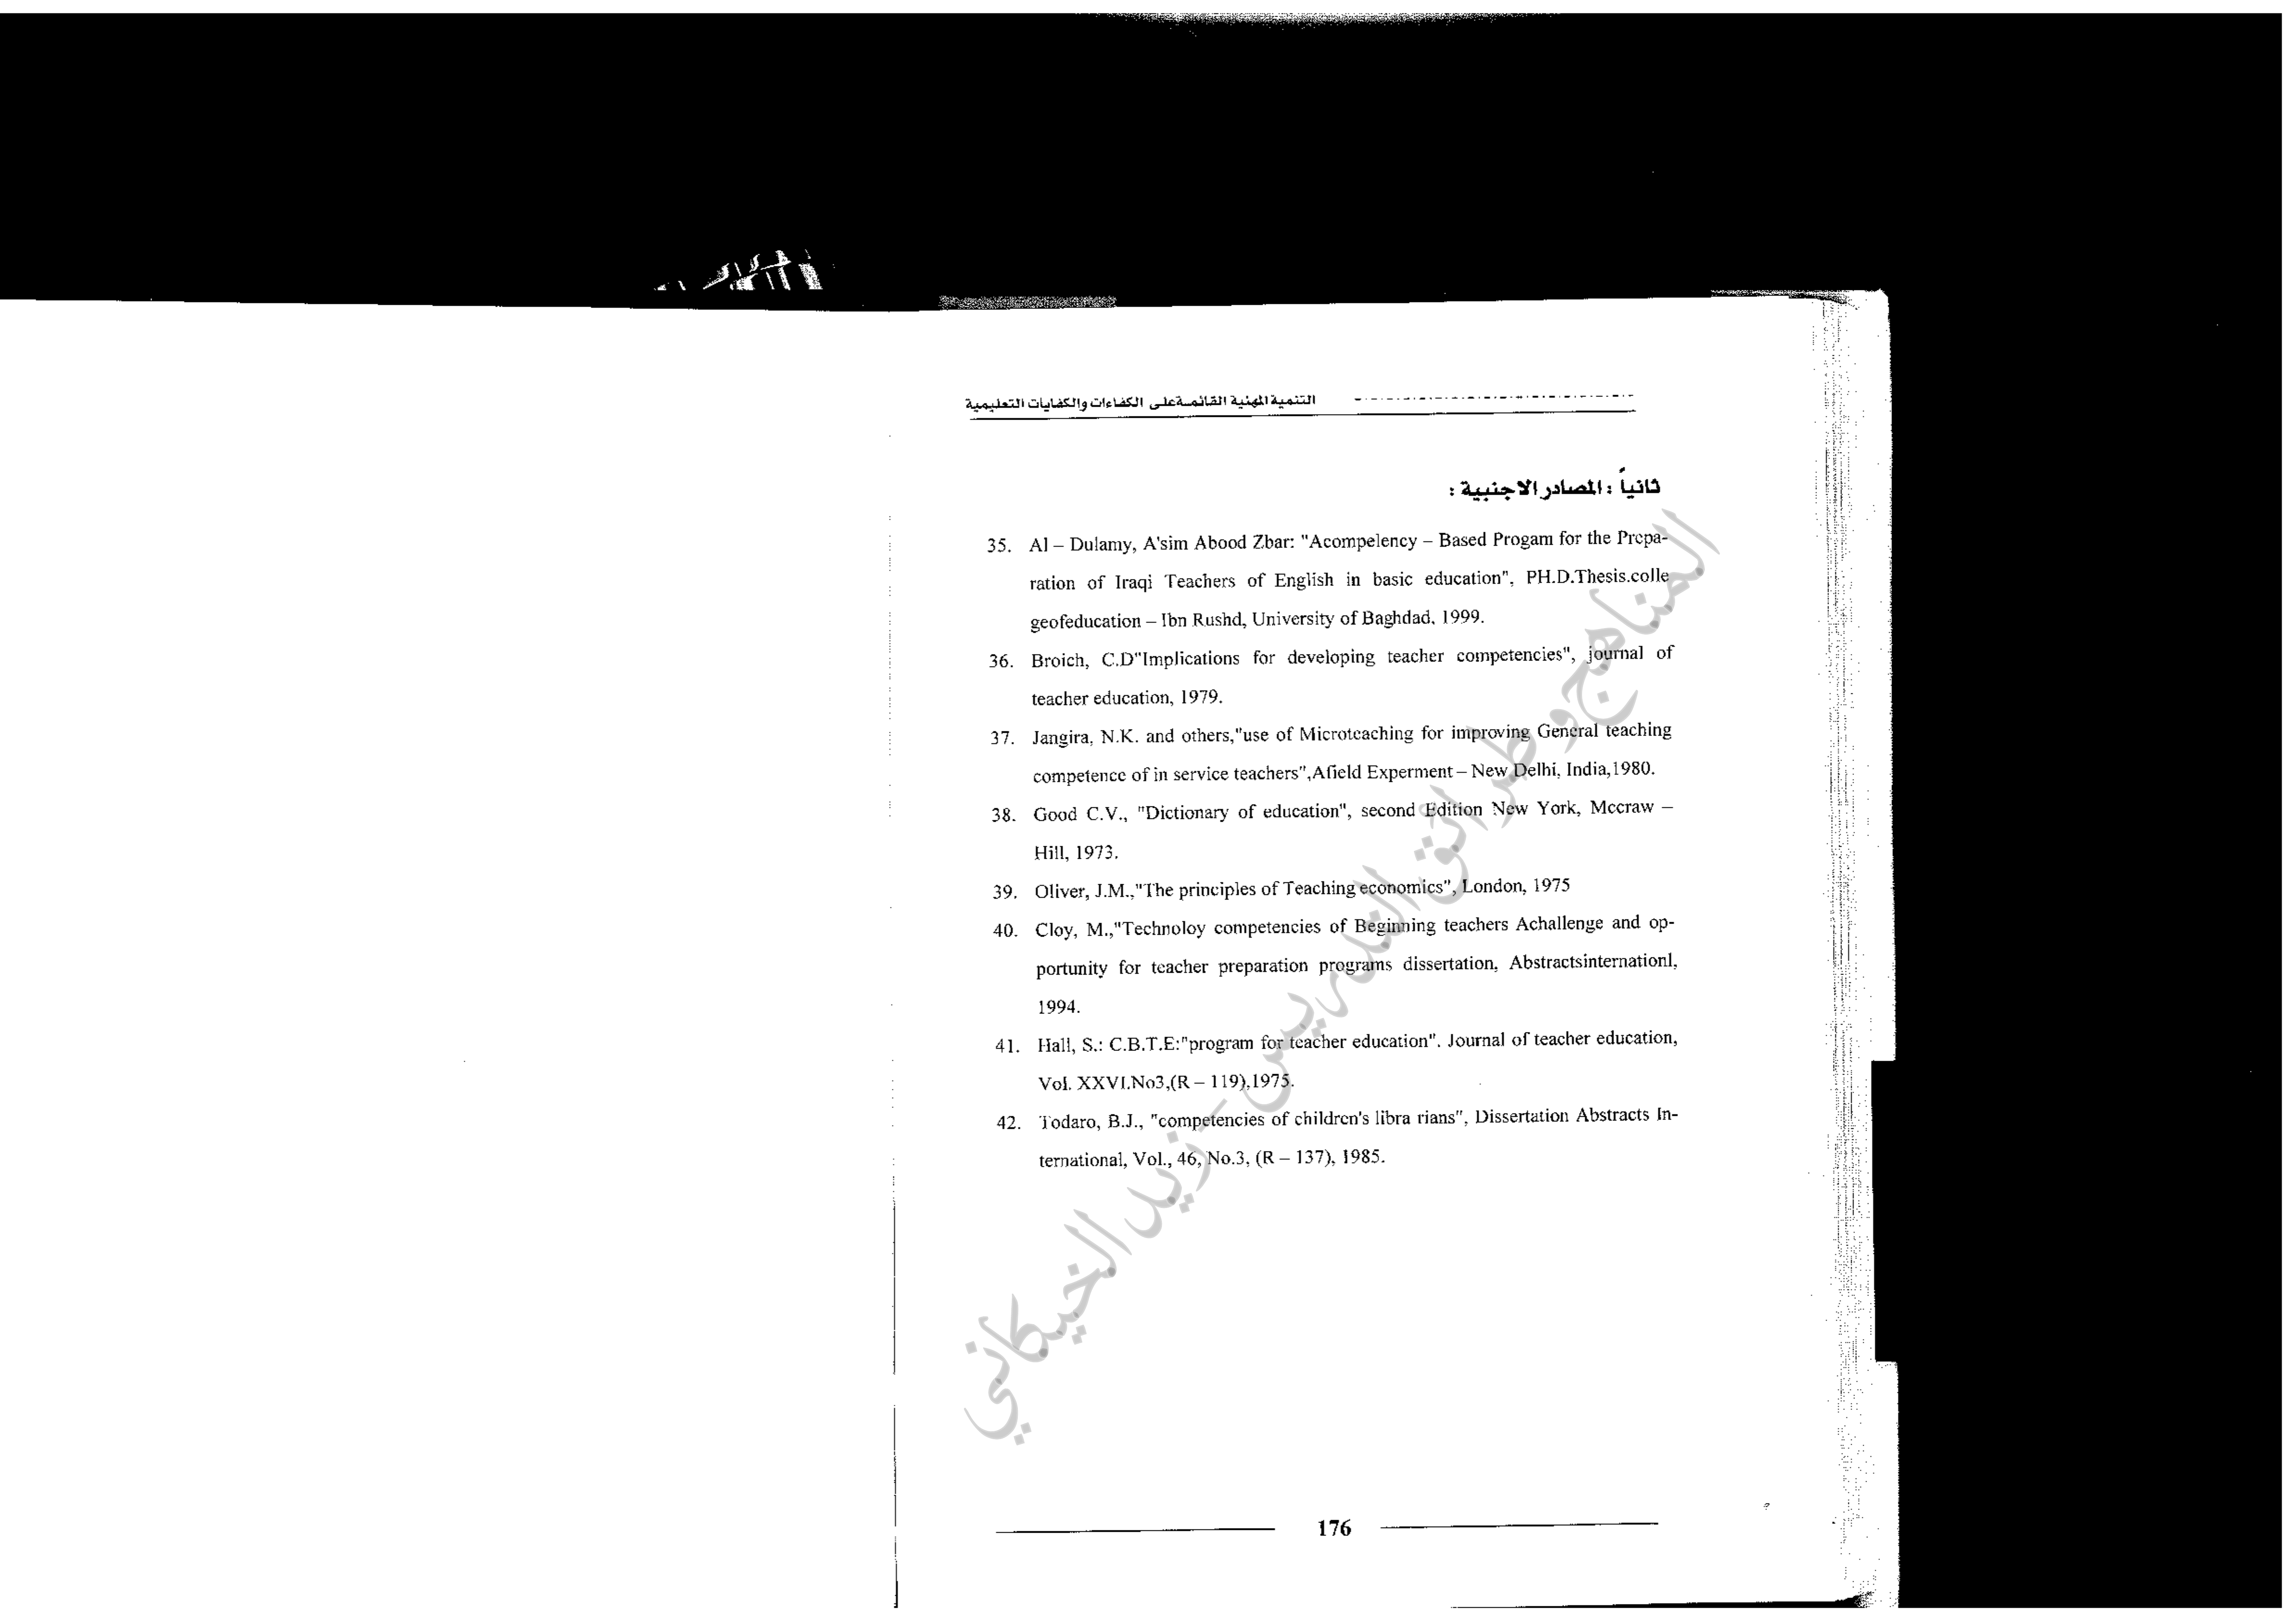 التنمية المهنية القائمة على الكفاءات والكفايات التعليمية
ثانياً : المصادر الاجنبية :
35. Al – Dulamy, A'sim Abood Zbar: "Acompelency – Based Progam for the Prepa-
ration of Iraqi Teachers of English in basic education", PH.D.Thesis.colle
geofeducation – Ibn Rushd, University of Baghdad, 1999.
36. Broich, C.D"Implications for developing teacher competencies", journal of
teacher education, 1979.
37. Jangira, N.K. and others,"use of Microteaching for improving General teaching
competence of in service teachers",Afield Experment – New Delhi, India,1980.
38. Good C.V., "Dictionary of education", second Edition New York, Mccraw –
Hill, 1973.
39. Oliver, J.M.,"The principles of Teaching economics", London, 1975
40. Cloy, M.,"Technoloy competencies of Beginning teachers Achallenge and op-
portunity for teacher preparation programs dissertation, Abstractsinternationl,
1994.
41. Hall, S.: C.B.T.E:"program for teacher education". Journal of teacher education,
Vol. XXVI.No3,(R – 119),1975.
42. Todaro, B.J., "competencies of children's libra rians", Dissertation Abstracts In-
ternational, Vol., 46, No.3, (R – 137), 1985.
المناهج وطرائق التدريس - زيد الخيكاني
176